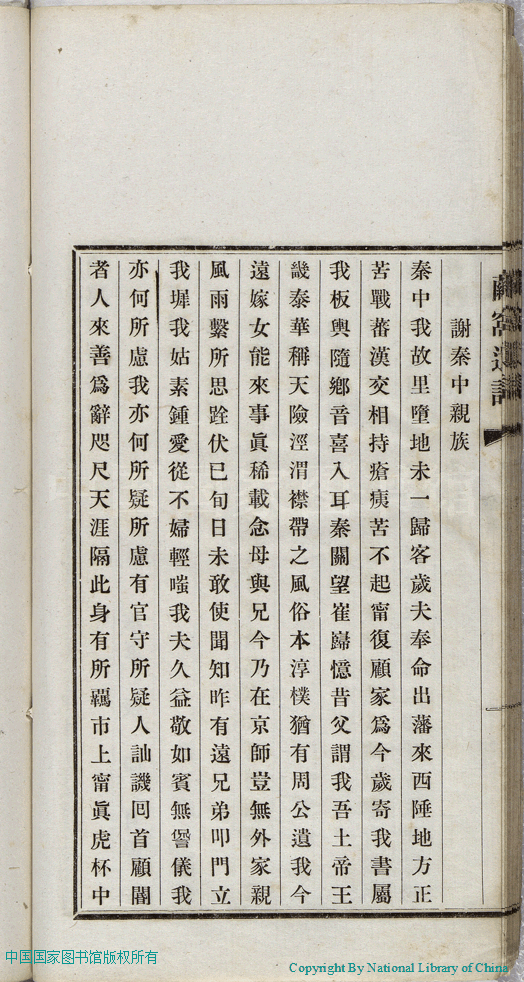 窩遺詩
謝秦中親族
秦中我故里墮地未一歸客歲夫奉命出藩來西陲地方正
苦戰蕃漢交相持瘡痍苦不起甯復顧家爲今歲寄我書屬
我板輿隨鄉音喜入耳秦關望崔歸憶昔父謂我吾土帝王
畿泰華稱天險涇渭襟帶之風俗本淳樸猶有周公遺我今
遠嫁女能來事眞稀載念母與兄今乃在京師豈無外家親
風雨繫所思跧伏已旬日未敢使聞知昨有遠兄弟叩門立
我墀我姑素鍾愛從不婦輕嗤我夫久益敬如賓無諐儀我
亦何所慮我亦何所疑所慮有官守所疑人訕譏囘首顧閽
者人來善爲辭咫尺天涯隔此身有所羈市上甯眞虎杯中
中国国家图书馆版权所有
Copyright By National Library of China